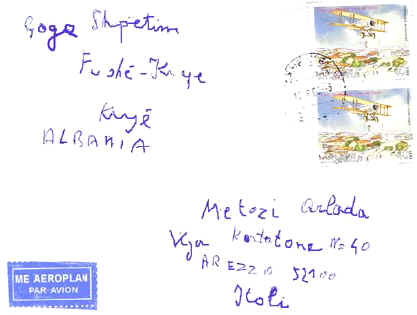 Goga Shpetim
Fushë-Kruje
Krujë
ALBANIA
Metozi Arlada
N= 40
AREZZO 52100
Itali
ME AEROPLAN
PAR AVION